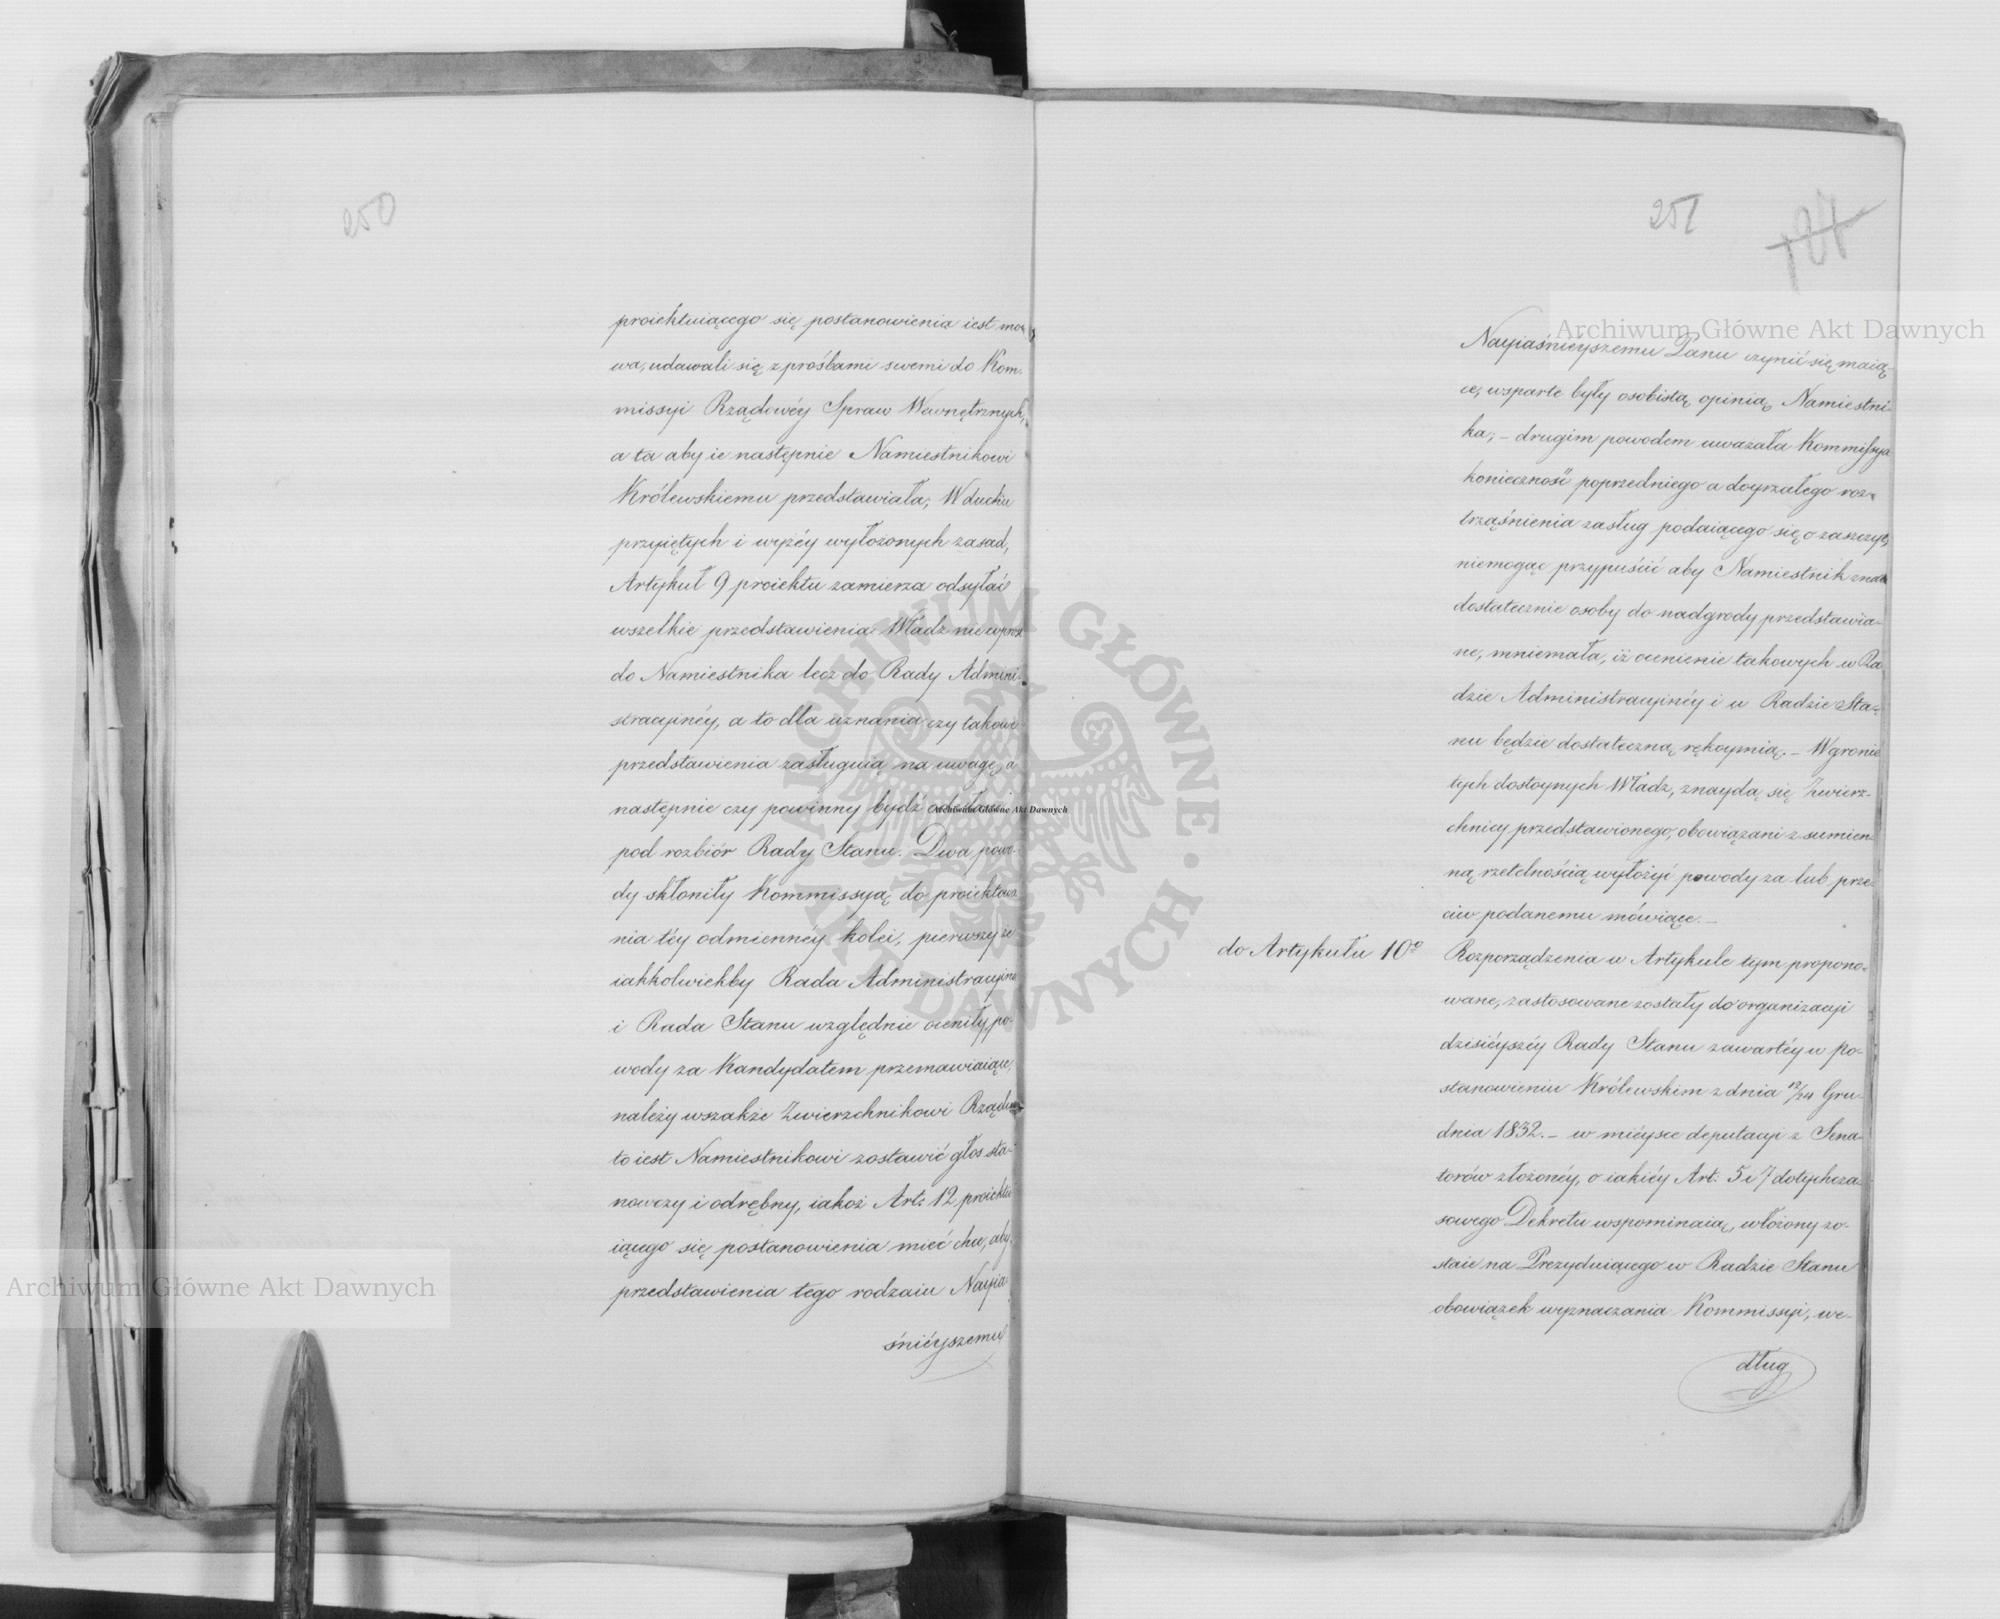 250
proiektuiącego się postanowienia iest mo-
wa, udawali się z prośbami swemi do Kom-
missyi Rządowéy Spraw Wewnętrznych,
a ta aby ie następnie Namiestnikowi
Królewskiemu przedstawiała; W duchu
przyiętych i wyżéy wyłożonych zasad,
Artykuł 9 proiektu zamierza odsyłać
wszelkie przedstawienia Władz nie wprost
do Namiestnika lecz do Rady Admini-
stracyinéy, a to dla uznania czy takowe
przedstawienia zasługuią na uwagę, a
następnie czy powinny bydź odesłane
pod rozbiór Rady Stanu. Dwa powo-
dy skłoniły Kommissyą do proiektowa-
nia téy odmienney kolei, pierwszy że
iakkolwiekby Rada Administracyina
i Rada Stanu względnie oceniły po-
wody za Kandydatem przemawiaiące,
należy wszakże Zwierzchnikowi Rządu
to iest Namiestnikowi zostawić głos sta-
nowczy i odrębny, iakoż Art: 12 proiektu-
iącego się postanowienia mieć chce, aby
przedstawienia tego rodzaiu Nayia-
śnieyszemu
251
127
Nayiaśnieyszemu Panu czynić się maią-
ce, wsparte były osobistą opinią Namiestni-
ka; – drugim powodem uważała Kommissya
konieczność poprzedniego a doyrzałego roz-
trząśnienia zasług podaiącego się o zaszczyt,
niemogąc przypuścić aby Namiestnik znał
dostatecznie osoby do nadgrody przedstawia-
ne, mniemała, iż ocenienie takowych w Ra-
dzie Administracyinéy i w Radzie Sta-
nu będzie dostateczną rękoymią. – W gronie
tych dostoynych Władz, znaydą się Zwierz-
chnicy przedstawionego, obowiązani z sumien-
ną rzetelnością wyłożyć powody za lub prze-
ciw podanemu mówiące. –
do Artykułu 10º
Rozporządzenia w Artykule tym propono-
wane, zastosowane zostały do organizacyi
dzisiéyszéy Rady Stanu zawartéy w po-
stanowieniu Królewskim z dnia 12/24 Gru-
dnia 1832. – w mieysce deputacyi z Sena-
torów złożonéy, o iakiéy Art: 5 i 7 dotychcza-
sowego Dekretu wspominaią, włożony zo-
staie na Prezyduiącego w Radzie Stanu
obowiązek wyznaczania Kommissyi, we-
dług
Archiwum Główne Akt Dawnych
Archiwum Główne Akt Dawnych
Archiwum Główne Akt Dawnych
ARCHIWUM GŁÓWNE AKT DAWNYCH